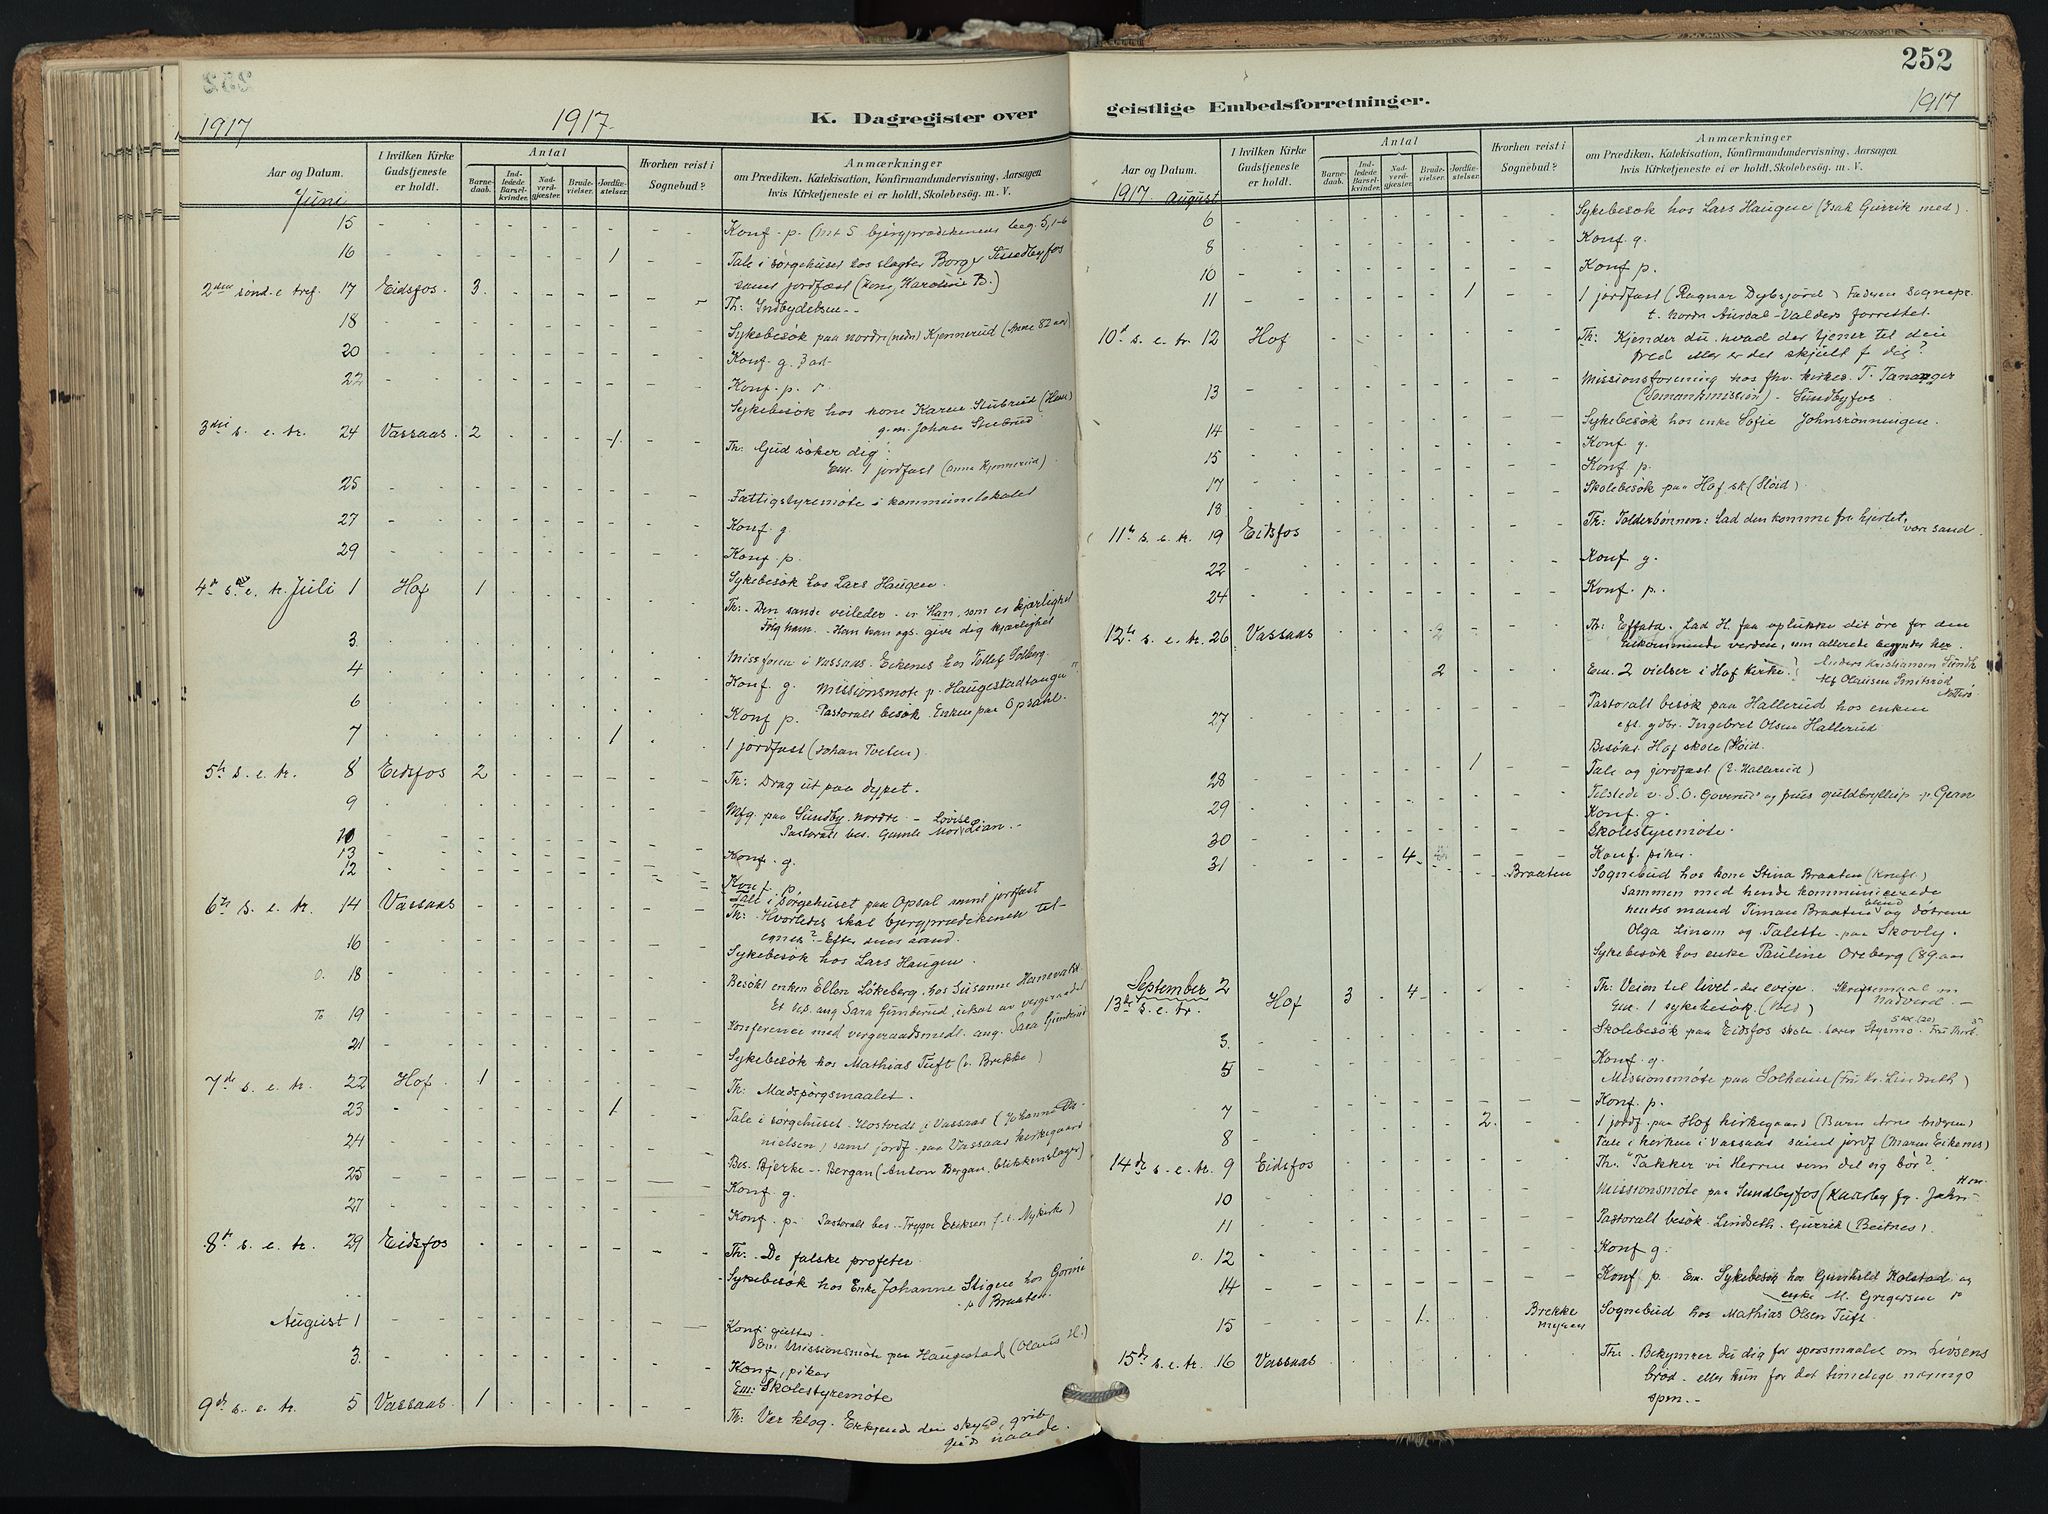 252
1917
1917
K. Dagregister over
geistlige Embedsforretninger.
1917
Aar og Datum.
I hvilken Kirke Gudstjeneste er holdt.
Antal
Barnedaab.
Indledede Barselkvinder.
Nadverdgjester.
Brudevielser.
Jordfæstelser.
Hvorhen reist i Sognebud?
Anmærkninger
om Prædiken, Katekisation, Konfirmandundervisning, Aarsagen
hvis Kirketjeneste ei er holdt, Skolebesøg. m. V.
Juni
15 Konf. p. (Mt 5 bjergprædikenens beg. 5, 1-6
16 1 Tale i sørgehuset hos slagter Borge Sundbyfos
samt jordfæst (kone Karoline B.)
2den sønd. e tref. 17 Eidsfos. 3. Th: Indbydelsen --
18 Sykebesøk paa nordre (nedr) Kjennerud (Anne 82 aar)
20 Konf. g.
22 Konf. p.
Sykebesøk hos kone Karen Stubrud
g. m. Johan Stubrud
3die s. e. tr. 24 Vassaas. 2 1. Th: Gud søker dig!
Em. 1 jordfæst (Anne Kjennerud).
25 Fattigstyremøte i kommunelokalet
27 Konf. g
29 Konf. p.
Sykebesøk hos Lars Haugen.
4de s. e. tr. Juli 1 Hof 1 Th: Den sande veileder er Han, som er kjærlighet
Følg ham. Han kan ogs. give dig kjærlighet
3. Missforen i Vassaas. Eikenes hos Tollef Solberg.
4 Konf. g. Missionsmøte p. Haugestadtangen
6 Konf p. Pastoralt besøk. Enken paa Opsahl.
7 1 1 jordfæst (Johan Tveten).
5te s. e. tr. 8 Eidsfos 2 Th: Drag ut paa dypet.
9 Mfg. paa Sundby nordre - Lovise
10 Pastoralt bes. Gamle
13 Konf. g.
12 Konf. p
Tale i sørgehuset paa Opsal samt jordfæst
6te s. e. tr. 14 Vassaas Th: Hvorledes skal bjergprædikenen tilegnes? - Efter dens aand.
16 Sykebesøk hos Lars Haugen.
18 Besøkt enken Ellen Løkeberg, hos Susanne
19 Konference med vergeraadsmedl. ang. Sara Gunderud
21 Sykebesøk hos Mathias Tuft (v. Brekke)
7de s. e. tr. 22 Hof. 1 Th: Madspørgsmaalet.
23 1. Tale i sørgehuset Hostvedt i Vassaas (Johanne Danielsen) samt jordf. paa Vassaas kirkegaard
24 Bes. Bjerke - Bergan (Anton Bergan, blikkenslager)
25 Konf. g.
27 Konf. p. Pastoralt bes. Trygve Eriksen f. t. Nykirke)
8de s. e. tr. 29 Eidsfos Th: De falske profeter
Sykebesøk hos Enke Johanne Stigen hos
p. Braaten.
August 1 Konf. gutter.
Em: Missionsmøte paa Haugestad (Olaus H.)
3. Konf, piker
Em: Skolestyremøte
9de s. e. tr. 5 Vassaas. 1 Th: Vær klog. Erkjend din skyld, grib
Guds naade.
Aar og Datum.
I hvilken Kirke Gudstjeneste er holdt.
Antal
Barnedaab.
Indledede Barselkvinder.
Nadverdgjester.
Brudevielser.
Jordfæstelser.
Hvorhen reist i Sognebud?
Anmærkninger
om Prædiken, Katekisation, Konfirmandundervisning, Aarsagen
hvis Kirketjeneste ei er holdt, Skolebesøg. m. V.
1917. August
6 Sykebesøk hos Lars Haugen (Isak Gurrik med).
8 Konf. g.
10 Konf p.
11 1 1 jordfæst (Ragnar Dybsjord) Faderen sognepr.
t. Nordr Aurdal - Valders forrettet.
10de s. e. tr. 12 Hof Th: Kjender du, hvad der tjener til din
fred eller er det skjult f dig?
13 Missionsforening hos fhv. kirkes. T. Tananger
(Sømandsmission). Sundbyfos.
14 Sykebesøk hos enke Sofie Johnsrønningen.
15 Konf. g.
17 Konf p.
18 Skolebesøk paa Hof sk (Sløid).
11te s. e. tr. 19 Eidsfos Th: Tolderbønnen: Lad den komme fra hjertet,
være sand.
22 Konf. g.
24 Konf. p.
12te s. e. tr. 26 Vassaas 2 Th: Effata. Lad H. faa oplukke dit øre for den
tilkommende verden, som allerede begyndes her.
2 Em. 2 vielser i Hof kirke. Anders Kristiansen
Alf Olausen Smidsrød
Nøtterø
27 Pastoralt besøk paa Hallerud hos enken
eft. gdbr. Ingebret Olsen Hallerud
Besøkt Hof skole (Sløid.
28 1 Tale og jordfæst (I. Hallerud)
29 Tilstede v. S. O. Gaverud og frues guldbryllup p Grean
Konf. g.
30 Skolestyremøte.
31 4 Konf. piker.
Braaten Sognebud hos kone Stina Braaten (Kræft)
Sammen med hende kommunicerede
hendes mand Timan Braaten blind og døtrene
Olga Linam og Talette paa Skovly.
Sykebesøk hos enke Pauline Oreberg (89 aar
September 2 Th: Veien til livet det evige. Skriftemaal og
Nadverd. -
13de s. e. tr. Hof 3 4 Em. 1 sykebesøk.
3. Skolebesøk paa Eidsfos skole.
5 Konf. g.
Missionsmøte paa Solheim (Fru Kr. Lindseth)
7 Konf. p.
8 2. 1 jordf. paa Hof kirkegaard (Barn Arne Andersen)
Tale i kirken i Vassaas samt jordf (Maren Eikenes)
14de s. e. tr. 9 Eidsfos Th: "Takker vi Herren som det sig bør?"
10 Missionsmøte paa Sundbyfos
11 Pastoralt besøk Lindseth. Gurrik (Beitnes).
12 Konf g.
14 Konf p. Em. Sykebesøk hos Gunhild Kolstad og
enke M. Gregersen
15 1. Brekke myren Sognebud hos Mathias Olsen Tuft.
15de s. e. tr. 16 Vassaas Th: Bekymrer du dig for spørsmaalet om Livsens
brød - eller kun for det timelige nærings
spm. -